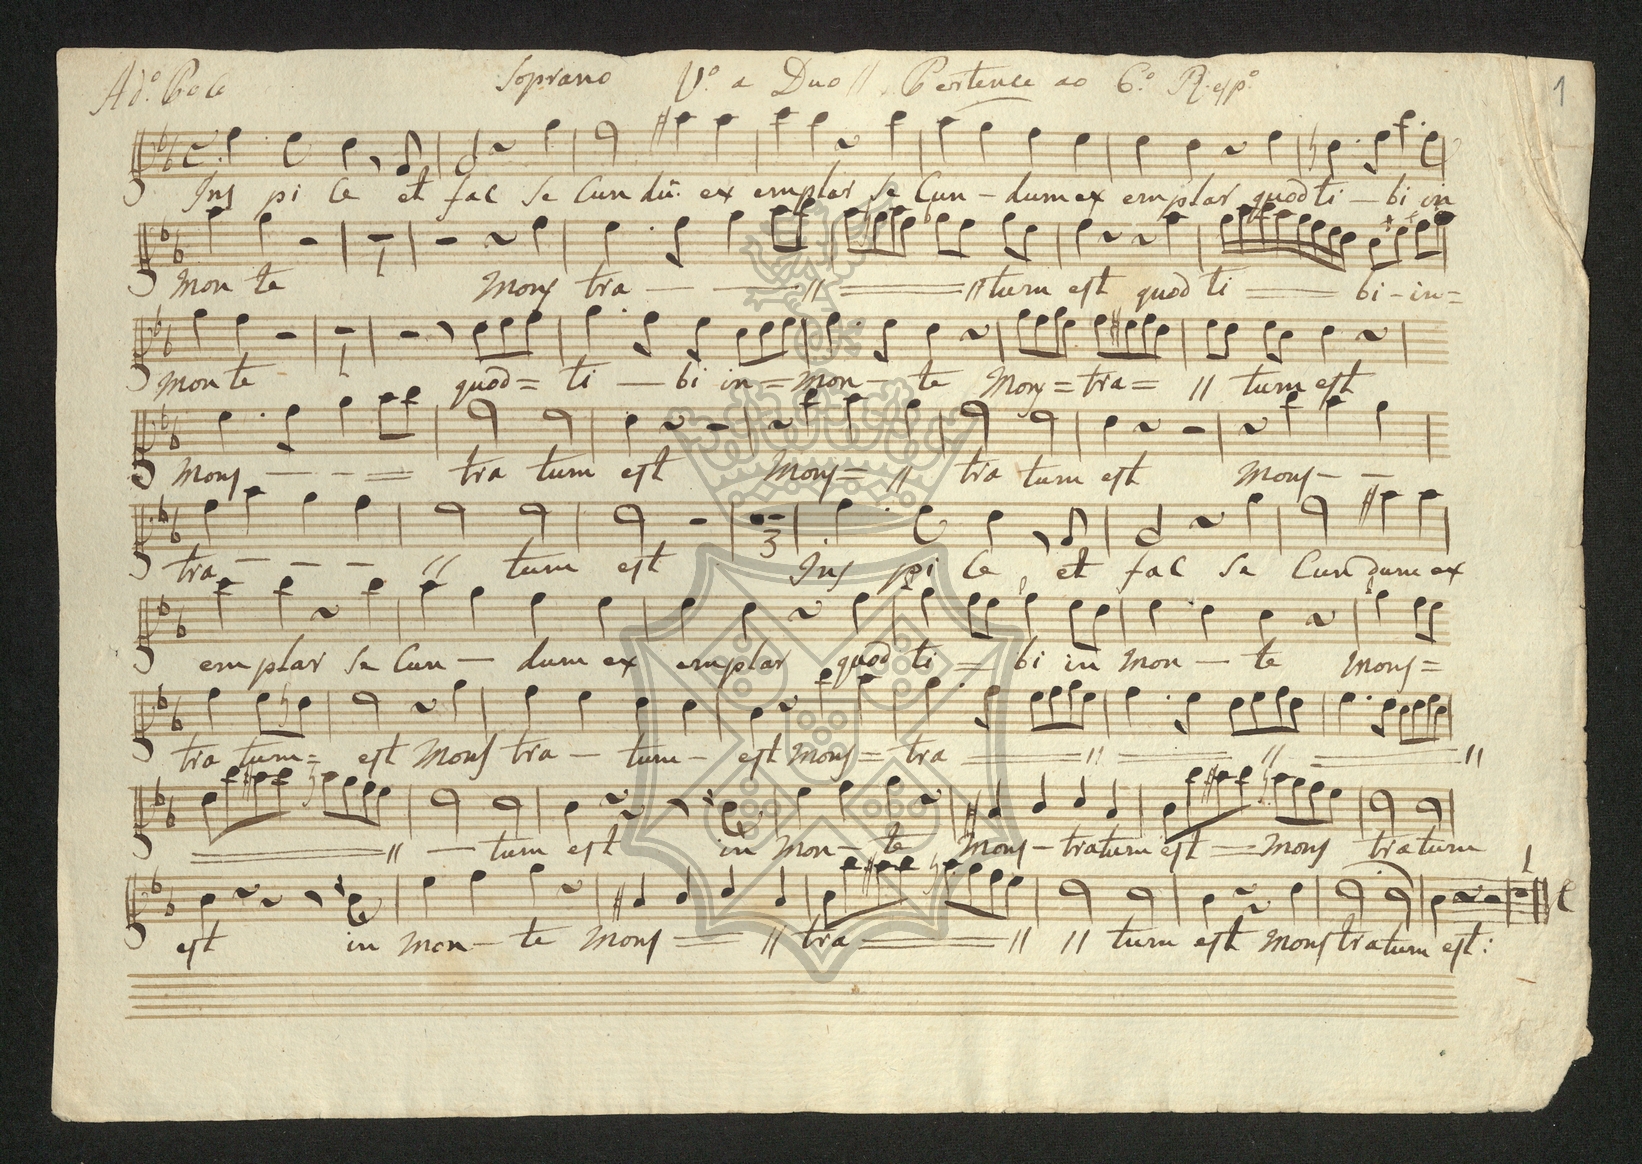 Soprano Vº a Duo // Pertence ao 6º Resp.º 1
Ins pi ce et fac se cun dũ: ex emplar se cun - dum ex emplar quod ti - bi in
mon te 1 Mons tra - - // = // tum est quod ti = bi - in =
monte 1 quod = ti - bi in = mon - te Mons = tra = // tum est
Mons - - = tra tum est Mons = // tra tum est Mons - -
tra - - - // tum est 3 Ins pi ce et fac se cun dum ex
emplar se cun - dum ex emplar quod ti = bi in mon - te Mons =
tra tum = est Mons tra - tum - est Mons = tra = // = // = //
= // - tum est in mon - te Mons - tratum est = Mons tratum
est in mon - te Mons = // tra = // // tum est Mons tratum est: